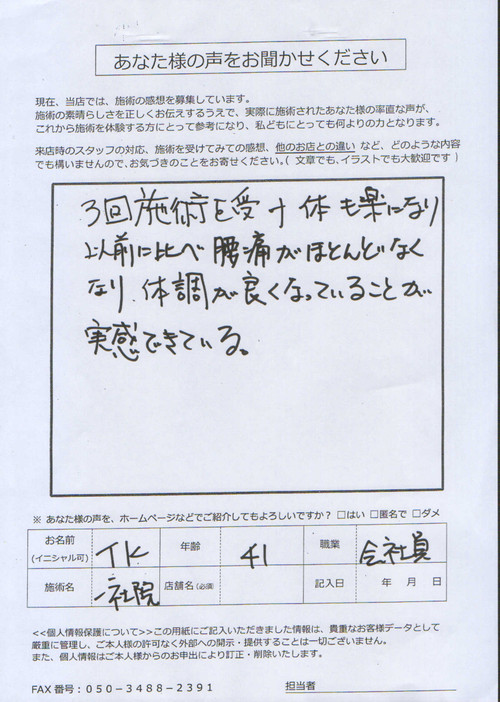 あなた様の声をお聞かせください
現在、当店では、施術の感想を募集しています。
施術の素晴らしさを正しくお伝えするうえで、実際に施術されたあなた様の率直な声が、
これから施術を体験する方にとって参考になり、私どもにとっても何よりの力となります。
来店時のスタッフの対応、施術を受けてみての感想、他のお店との違い など、どのような内容
でも構いませんので、お気づきのことをお寄せください。( 文章でも、イラストでも大歓迎です )
3回施術を受け体も楽になり
以前に比べ腰痛がほとんどなく
なり、体調が良くなっていることが
実感できている。
※ あなた様の声を、ホームページなどでご紹介してもよろしいですか？ □はい □匿名で □ダメ
お名前 (イニシャル可) TK 年齢 41 職業 会社員
施術名 店舗名(必須) 記入日 年 月 日
<<個人情報保護について>>この用紙にご記入いただきました情報は、貴重なお客様データとして
厳重に管理し、ご本人様の許可なく外部への開示・提供することは一切ございません。
また、個人情報はご本人様からのお申出により訂正・削除いたします。
FAX 番号：050－3488－2391 担当者